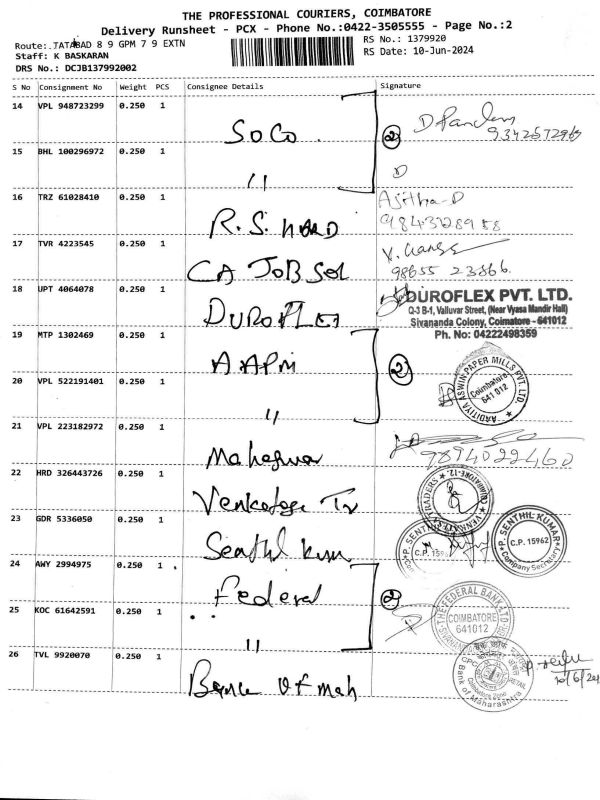 THE PROFESSIONAL COURIERS, COIMBATORE
Delivery Runsheet - PCX - Phone No.:0422-3505555 - Page No.:2
Route:.TATABAD 8 9 GPM 7 9 EXTN
Staff: K BASKARAN
DRS No.: DCJB137992002
RS No.: 1379920
RS Date: 10-Jun-2024
S No Consignment No Weight PCS Consignee Details Signature
14 VPL 948723299 0.250 1 SOCO 2
15 BHL 100296972 0.250 1 "
16 TRZ 61028410 0.250 1 R.S. Ajitha-D
17 TVR 4223545 0.250 1 CA JOB SOL
98655 23866
18 UPT 4064078 0.250 1 DUROFLEX
DUROFLEX PVT. LTD.
Q-3 B-1, Valluvar Street, (Near Vyasa Mandir Hall)
Sivananda Colony, Coimatore - 641012
Ph. No: 04222498359
19 MTP 1302469 0.250 1 AAPM 2
20 VPL 522191401 0.250 1 "
AADITIYA ASWIN PAPER MILLS PVT. LTD.
Coimbatore
641 012
21 VPL 223182972 0.250 1 Maheswar
9894022460
22 HRD 326443726 0.250 1 Venkatesa Tr
VENKATESA TRADERS
COIMBATORE-12.
23 GDR 5336050 0.250 1 Senthil Kum
P. SENTHIL
C.P. 159
P. SENTHIL KUMAR
C.P. 15962
Company Secretary
24 AWY 2994975 0.250 1 Federal 2
25 KOC 61642591 0.250 1 "
THE FEDERAL BANK LTD
COIMBATORE
641012
26 TVL 9920070 0.250 1 Bank of mah
Bank of Maharashtra
Coimbatore Zone
10/6/24